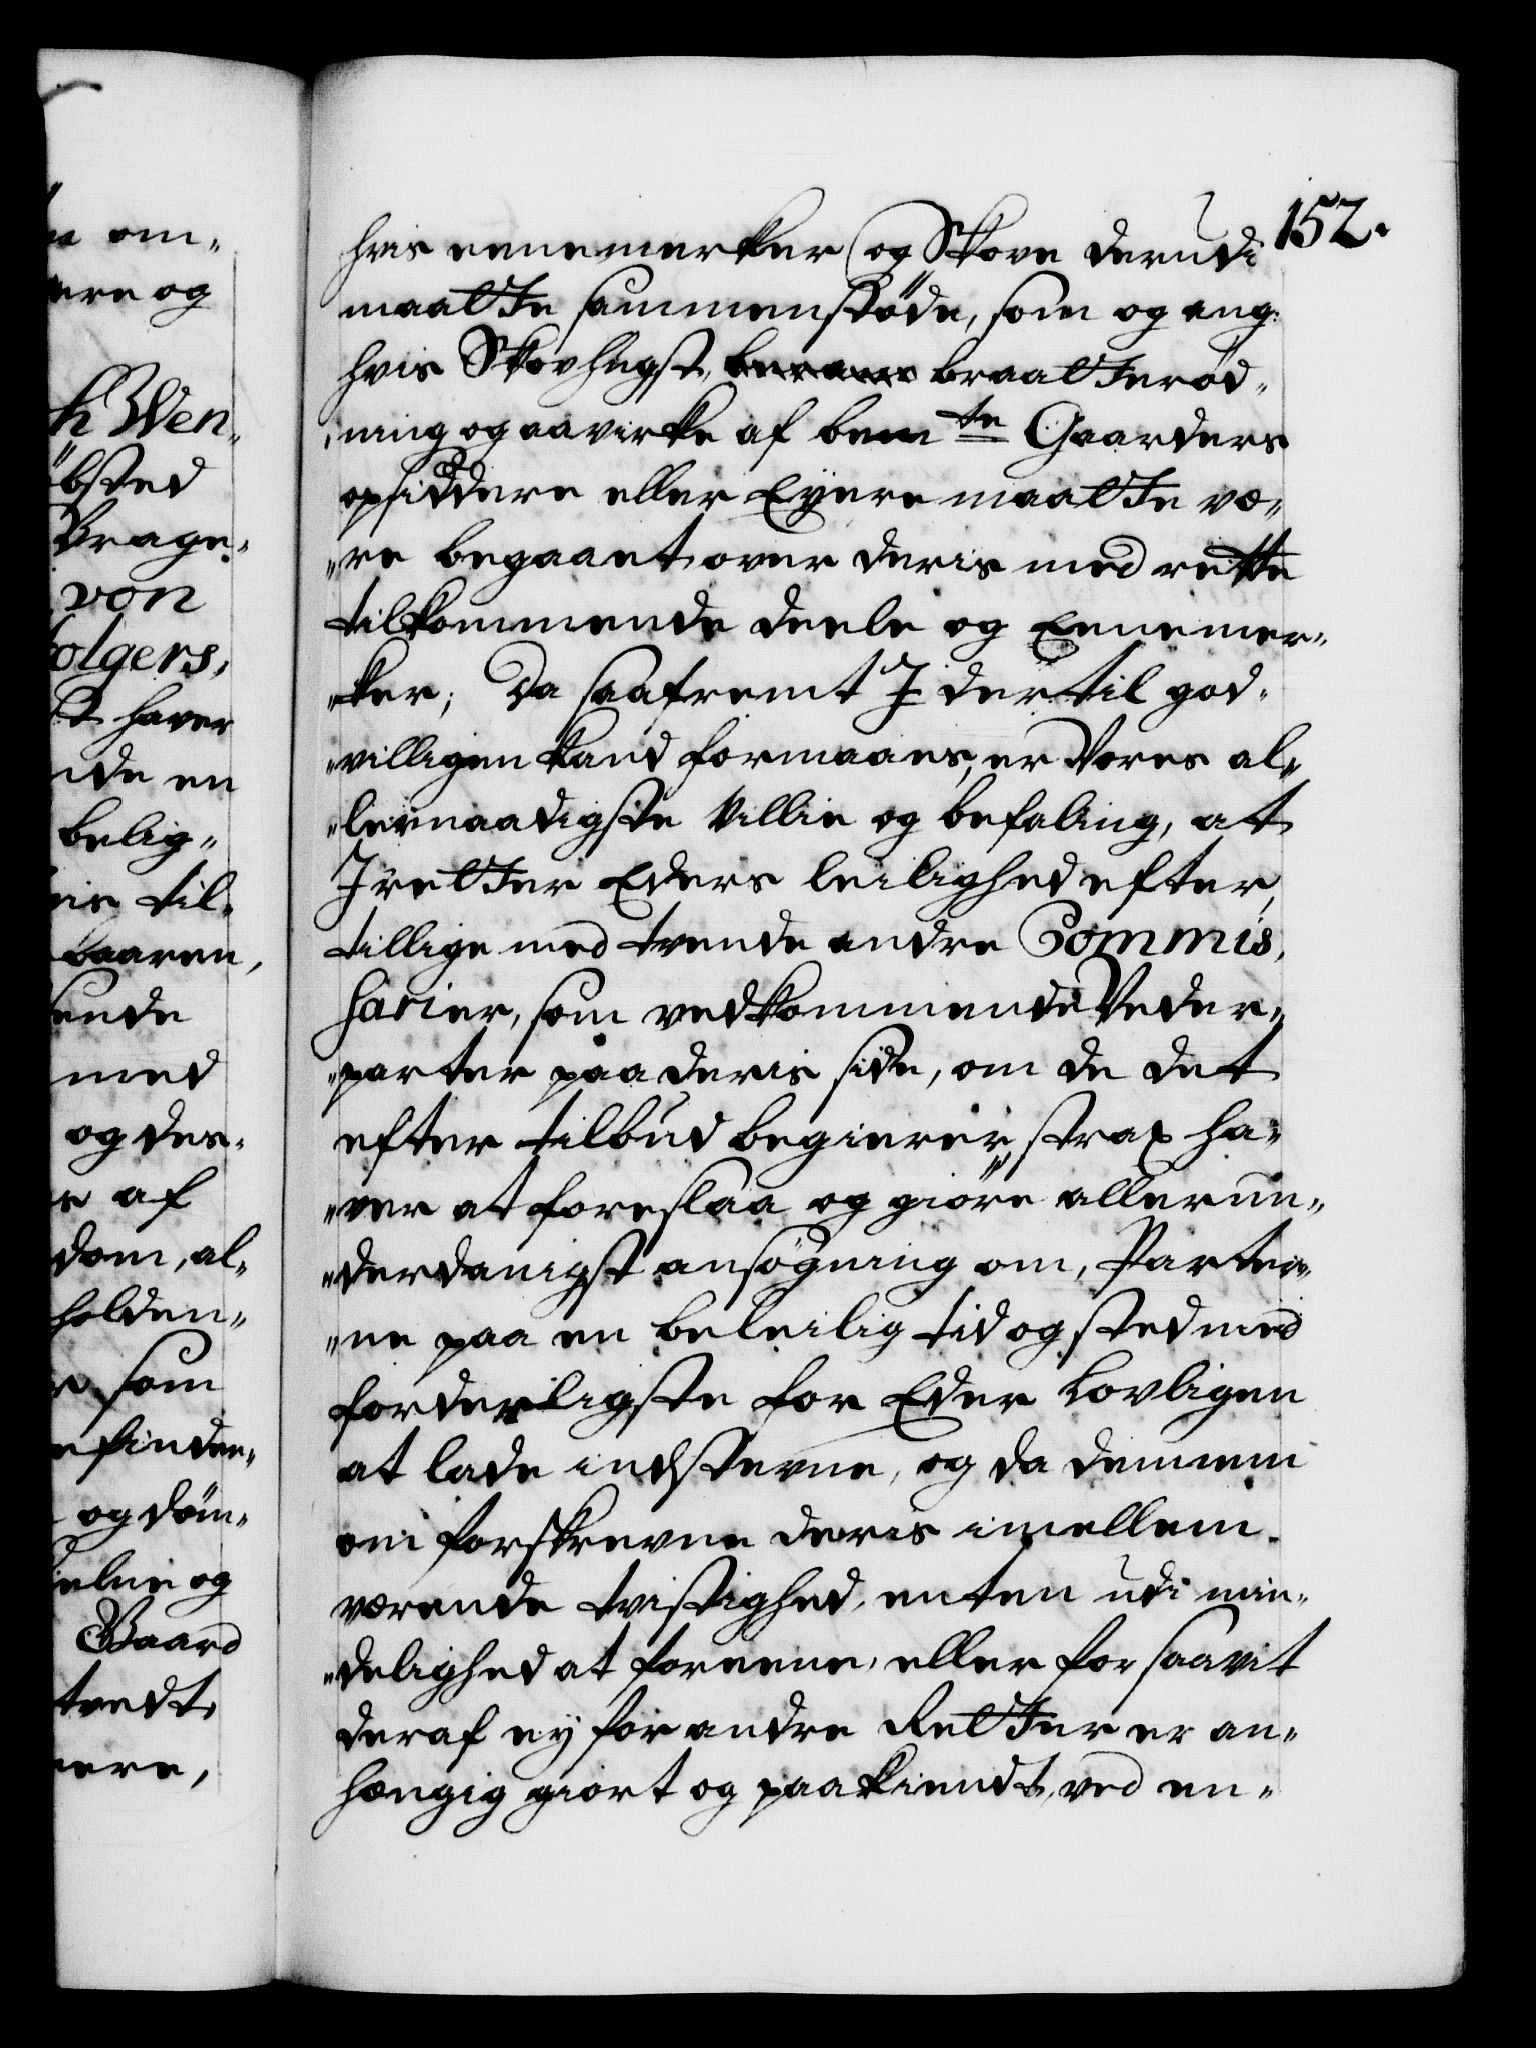 152.
hvis eenemerker og Skove derudi
maatte sammenstöde, som og ang:
hvis Skovhugst, braatterød„
„ning og aavirke af bem te Gaarders
opsiddere eller Eyere maatte væ„
„re begaaet over deris med rette
tilkommende deele og Eenemer„
„ker; Da saafremt I dertil god„
„villigen kand formaaes, er Vores al„
„lernaadigste Villie og befaling, at
I retter Eders leilighed efter,
tillige med tvende andre Commis„
sarier, som vedkommende Veder„
„parter paa deris side, om de det
efter tilbud begierer, strax ha„
„ver at foreslaa og giöre allerun„
„derdanigst ansögning om, Parter„
„ne paa en beleilig tid og sted med
forderligste for Eder Lovligen
at lade indstevne, og da dennem
om forskrevne deris imellem
værende tvistighed, enten udi min„
„delighed at foreene, eller for saavit
deraf ey for andre Retter er an„
hængig giort og paakiendt, ved en„
om„
ere og
h Wen„
bsted
Brage„
von
olgers,
haver
nde en
belig„
til„
baaren,
ende
med
og des„
af
dom, al„
holden„
som
finder„
og döm„
og
Gaard
tvedt,
ere,